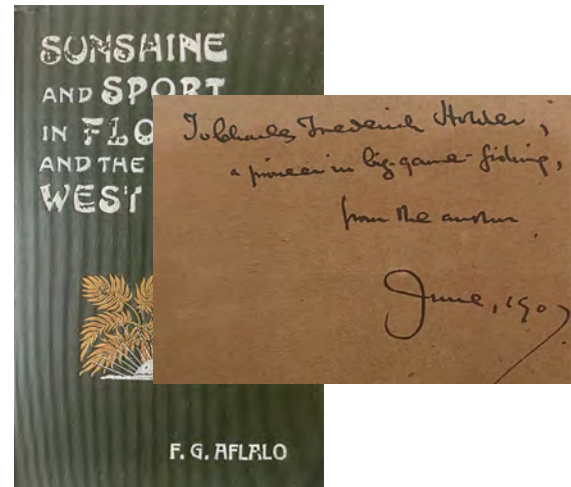 SUNSHINE
AND SPORT
IN FLO
AND THE
WEST
F. G. AFLALO
To Charles Frederick Holder,
a pioneer in big-game-fishing,
from the author
June, 1907